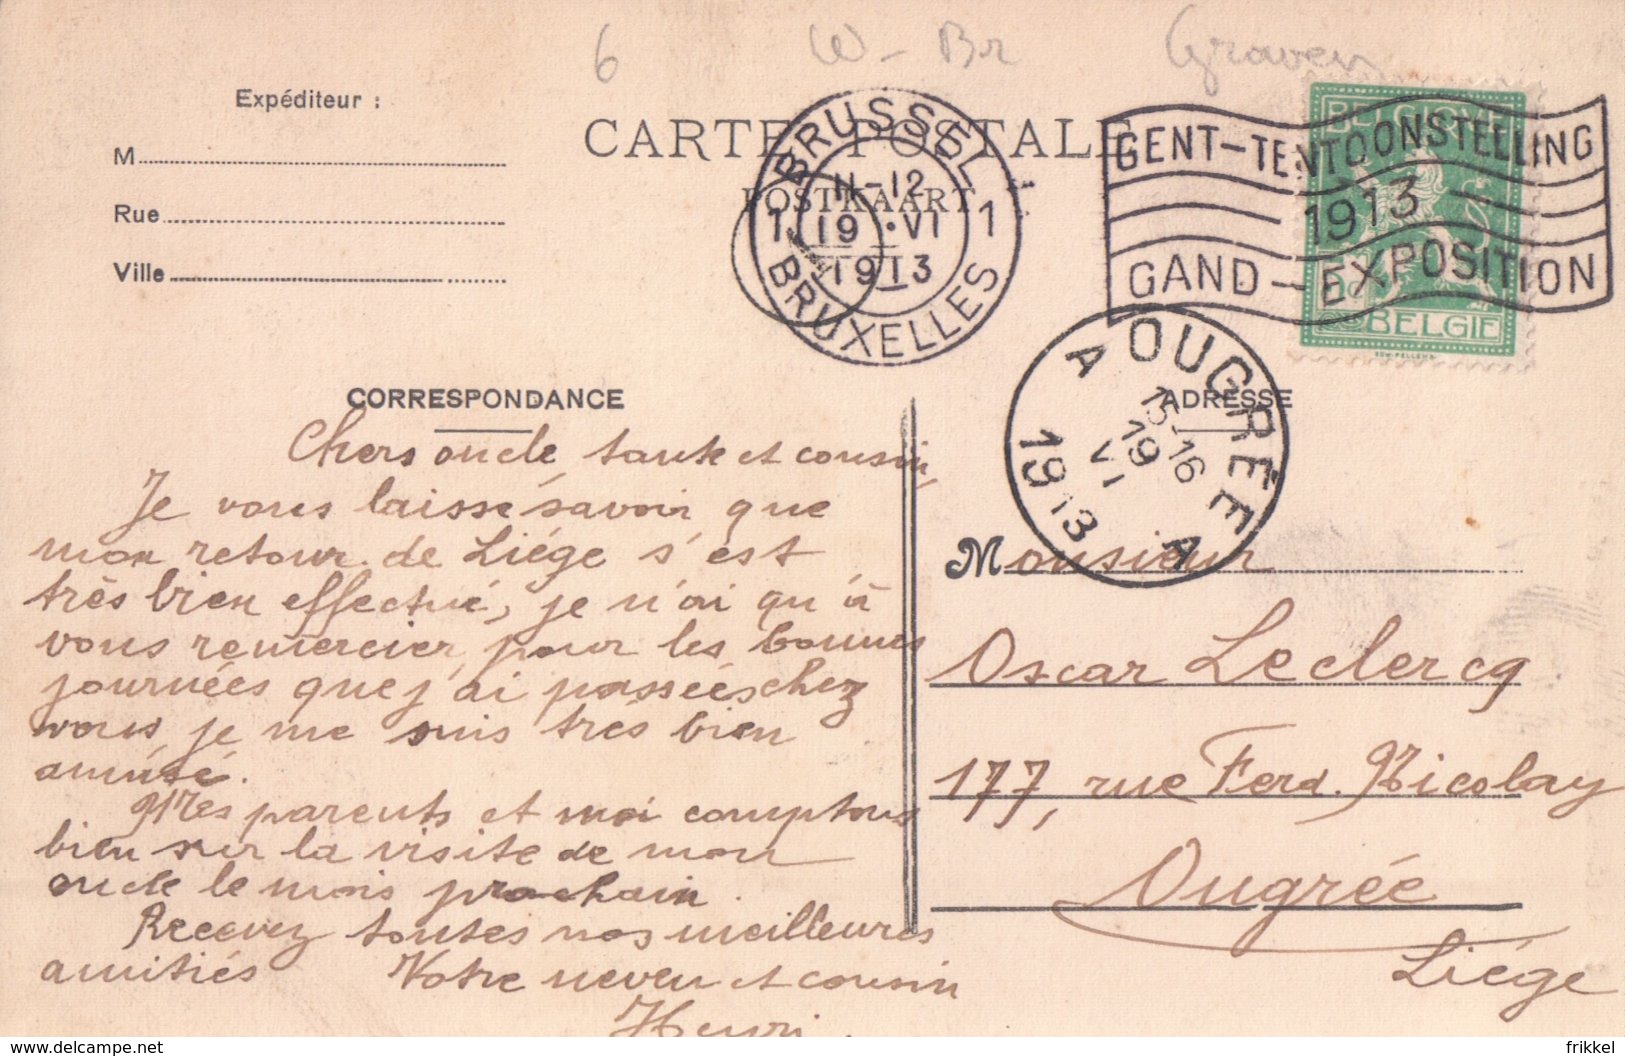 6 W-Br Graven
Expéditeur :
M
Rue
Ville
CARTE POSTALE
POSTKAART
BRUSSEL
11-12
1 19 ·VI 1
1913
BRUXELLES
GENT-TENTOONSTELLING
1913
GAND-EXPOSITION
BELGIQUE
BELGIE
OUGRÉE
A A
15-16
19
VI
1913
CORRESPONDANCE
ADRESSE
Chers oncle, tante et cousin,
Je vous laisse savoir que
mon retour de Liége s'est
très bien effectué, je n'ai qu'à
vous remercier pour les bonnes
journées que j'ai passées chez
vous je me suis très bien
amusé.
Mes parents et moi comptons
bien sur la visite de mon
oncle le mois prochain.
Recevez toutes nos meilleures
amitiés Votre neveu et cousin
Henri.
Monsieur
Oscar Leclercq
177, rue Ferd. Nicolay
Ougrée
Liége
www.delcampe.net
frikkel